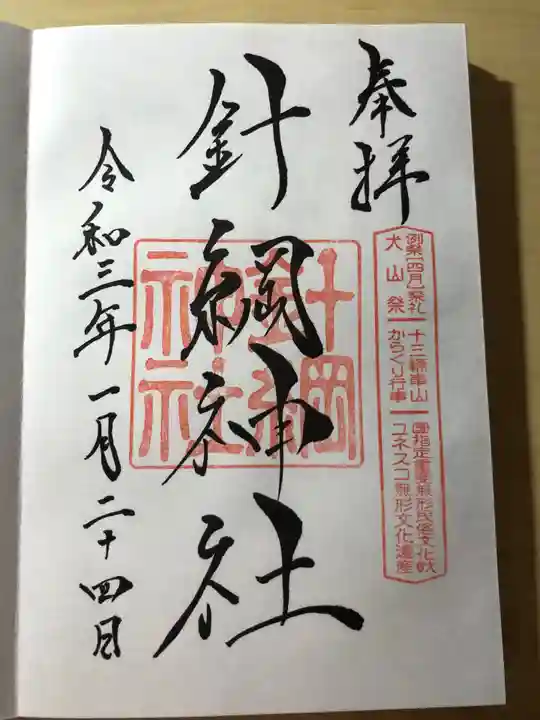 奉拝
例祭【四月】祭礼
犬山祭
十三輌車山
からくり行事
国指定重要無形民俗文化財
ユネスコ無形文化遺産
針綱神社
針綱
神社
令和三年一月二十四日